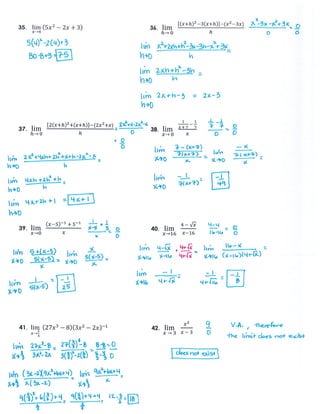 35. lim x→4 (5x² − 2x + 3)
5(4)² - 2(4)+3
80-8+3 = 75
36. lim h→0 [(x+h)²−3(x+h)]−(x²−3x) / h = x²-3x-x²+3x / 0 = 0/0
lim h→0 x²+2xh+h²-3x-3h-x²+3x / h
lim h→0 2xh+h²-3h / h =
lim h→0 2x+h-3 = 2x-3
37. lim h→0 [2(x+h)²+(x+h)]−(2x²+x) / h
= 0/0
lim h→0 2x²+4xh+2h²+x+h-2x²-x / h
lim h→0 4xh+2h²+h / h =
lim h→0 4x+2h+1 = 4x+1
38. lim x→0
= 0/0
lim x→0 7-(x+7) / 7(x+7) = lim x→0 -x / 7(x+7) =
lim x→0 -1 / 7(x+7) = -1/49
39. lim x→0 (x−5)⁻¹ + 5⁻¹ / x = 0/0
lim x→0 5+(x-5) / 5(x-5) = lim x→0 x / 5(x-5) =
lim x→0 1 / 5(x-5) = -1/25
40. lim x→16 4 − √x / x−16 = 4-4 / 16-16 = 0/0
lim x→16 4-√x · 4+√x / 4+√x = lim x→16 16-x / (x-16)(4+√x)
lim x→16 -1 / 4+√x = -1 / 4+√16 = -1/8
41. lim (27x³ − 8)(3x² − 2x)⁻¹
lim 27x³-8 / 3x²-2x = 8-8 = 0
lim (3x-2)(9x²+6x+4) / x(3x-2) = lim 9x²+6x+4 / x
= 18
42. lim x→3 x² / x−3 9/0 V.A., therefore
the limit does not exist
does not exist